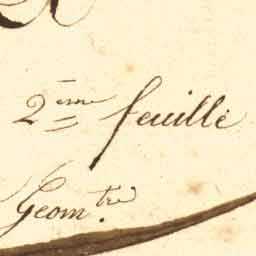 2ème feuille
Géom.tre